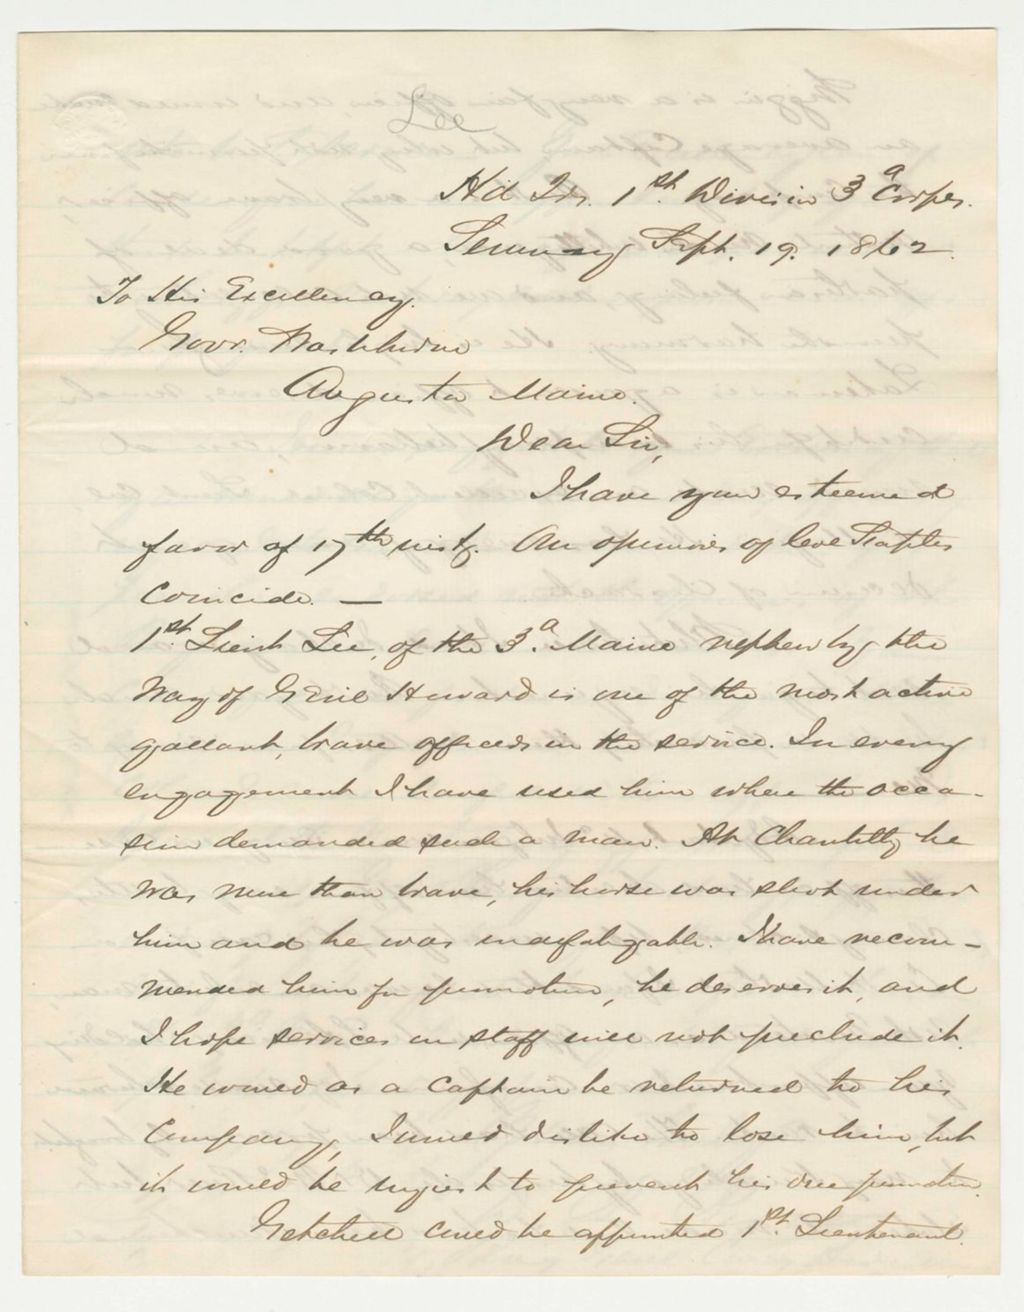 Lee
Hd Qrs. 1st. Division 3d Corps.
Seminary Sept. 19. 1862.
To His Excellency.
Govr. Washburne
Augusta Maine.
Dear Sir,
I have your esteemed
favor of 17th inst. Our opinions of Col Staples
Coincide. —
1st. Lieut Lee, of the 3d. Maine nephew by the
way of Genl Howard is one of the most active
gallant, brave officers in the service. In every
engagement I have used him where the occa-
sion demanded such a man. At Chantilly he
was more than brave, his horse was shot under
him and he was indefatigable. I have recom-
mended him for promotion, he deserves it, and
I hope services on staff will not preclude it.
He would as a Captain be returned to his
Company, I would dislike to lose him, but
it would be unjust to prevent his due promotion.
Getchell could be appointed 1st. Lieutenant.